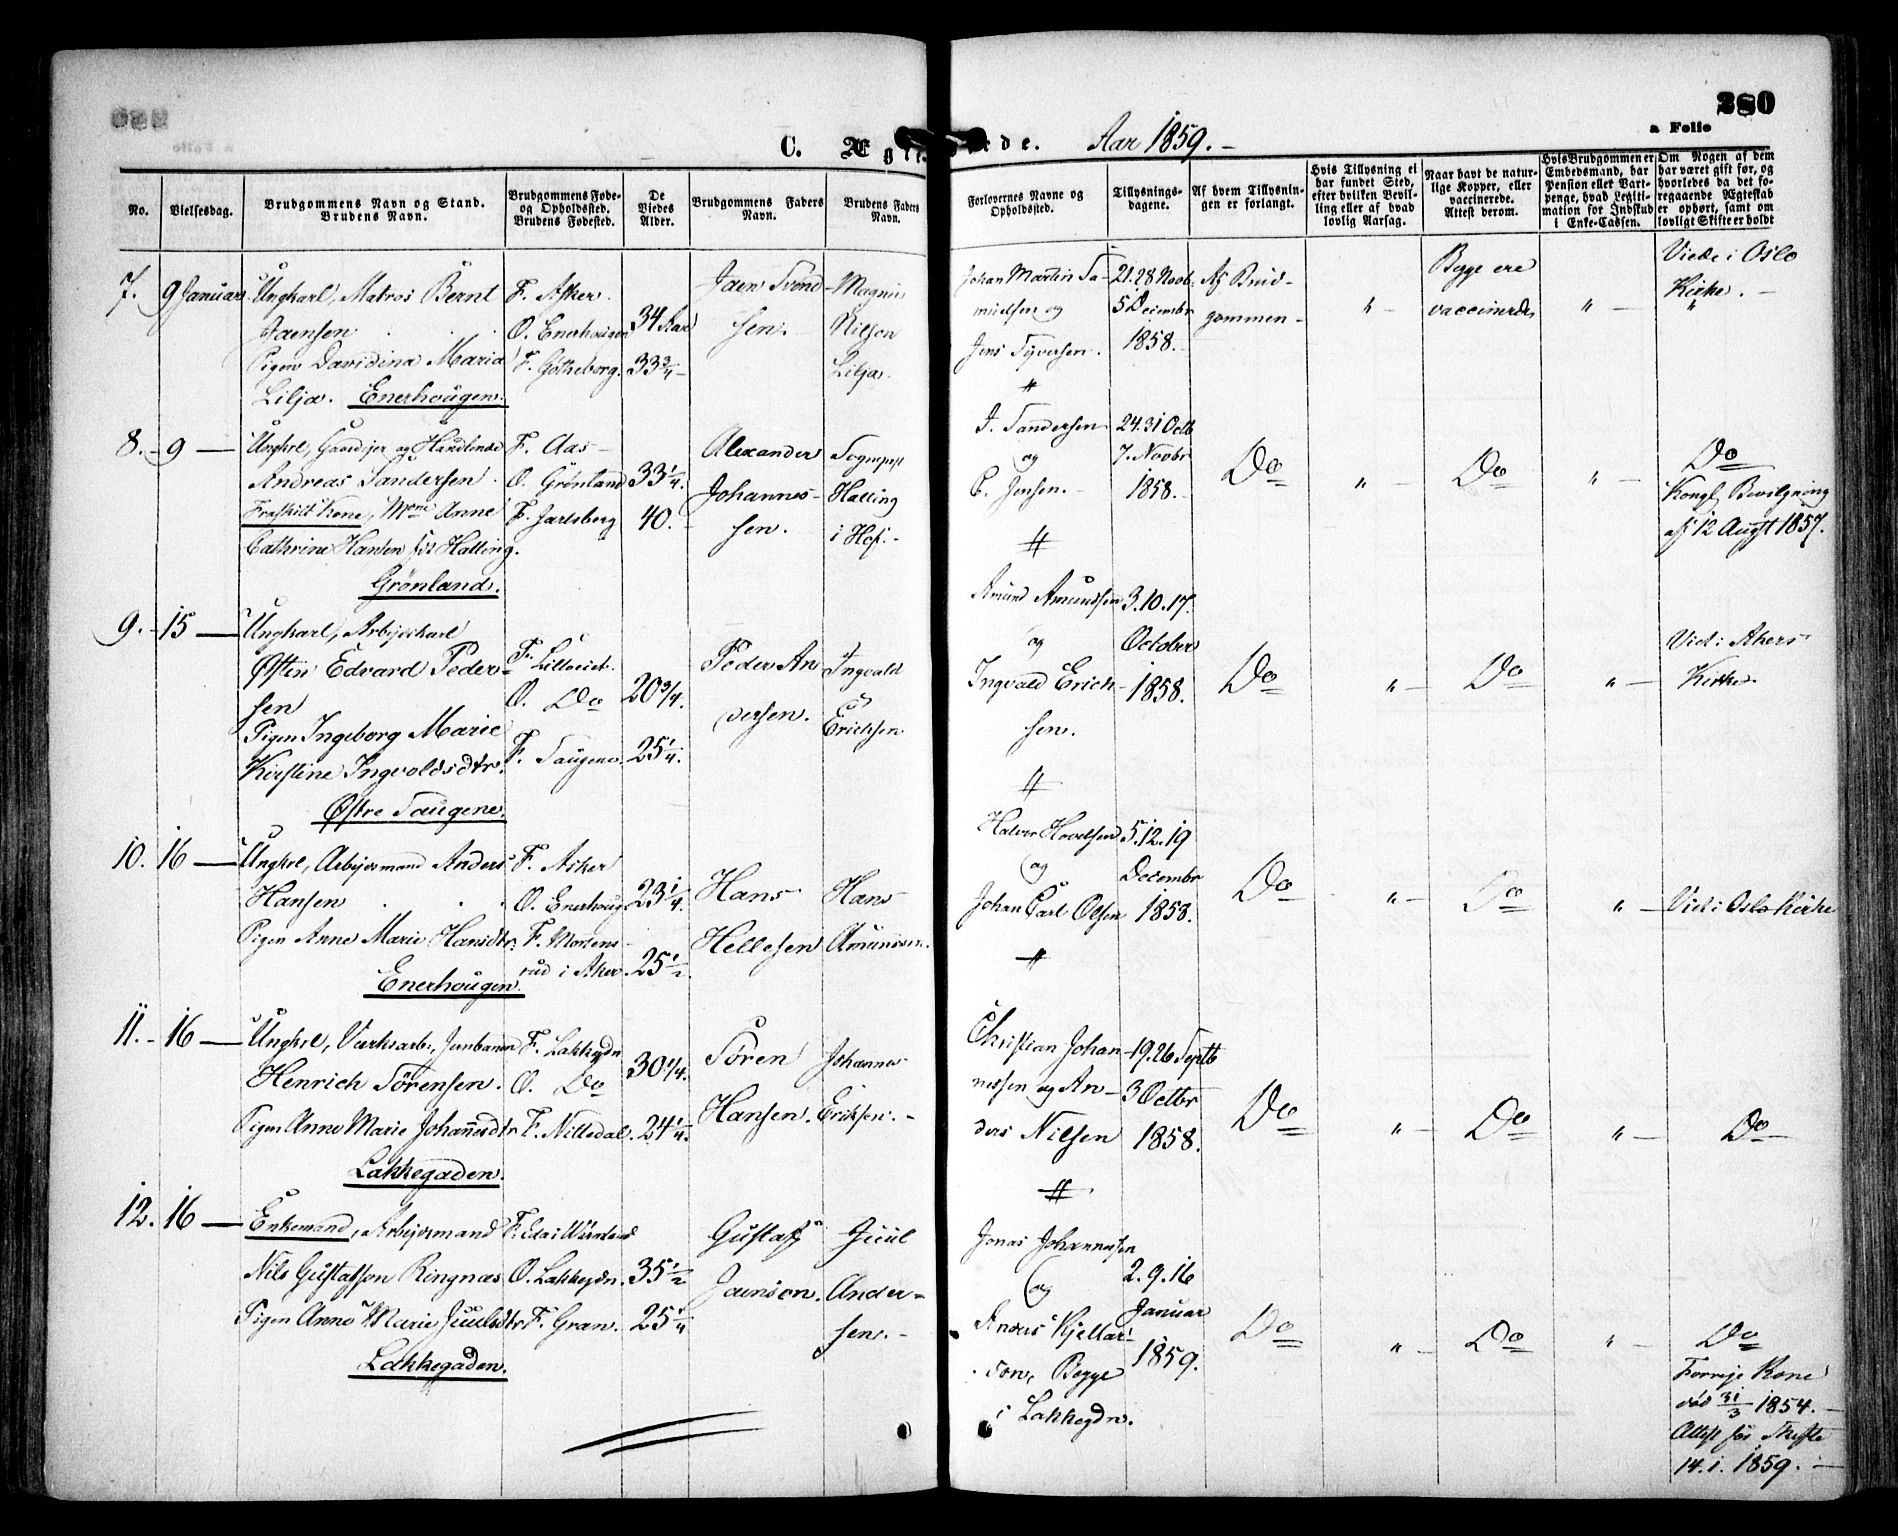 280
a Folio
C. Ægteviede. Aar 1859.-
No.
Vielsesdag.
Brudgommens Navn og Stand.
Brudens Navn.
Brudgommens Føde-
og Opholdssted.
Brudens Fødested.
De
Viedes
Alder.
Brudgommens Faders
Navn.
Brudens Faders
Navn.
Forlovernes Navne og
Opholdssted.
Tillysnings-
dagene.
Af hvem Tillysnin-
gen er forlangt.
Hvis Tillysning ei
har fundet Sted,
efter hvilken Bevil-
ling eller af hvad
lovlig Aarsag.
Naar havt de natur-
lige Kopper, eller
vaccinerede.
Attest derom.
Hvis Brudgommen er
Embedsmand, har
Pension eller Vart-
penge, hvad Legiti-
mation for Indskud
i Enke-Cassen.
Om Nogen af dem
har været gift før, og
hvorledes da det fo-
regaaende Ægteskab
er ophørt, samt om
lovligt Skifte er holdt
7. 9 Januar
Ungkarl, Matros Bernt
Jaensen
Pigen Davidina Maria
Lilja. Enerhougen.
F. Asker.
O. Enerhougen
F. Götheborg.
34 Aar
33 3/4 -
Jden Svend-
sen.
Magnus
Nilsen
Lilja.
Johan Martin Sa-
muelsen og
Jens Syversen.
21. 28 Novb.
5 Decembr
1858.
Af Brud-
gommen-
" -
Begge ere
vaccinerede
" -
Viede i Oslo
Kirke. -
8. - 9 —
Ungkrl, Gaardejer og Handlende
Andreas Sandersen.
Fraskilt Kone, Mme Anne
Cathrine Hansen født Halling.
Grönland.
F. Aas-
O. Grönland
F. Jarlsberg
33 1/4.
40. -
Alexander
Johannes-
sen.
Sognepst
Halling
i Hof.-
J. Sandersen
og
C. Jensen.
24. 31 Octb
7. Novbr
1858.
Do
" -
Do
" -
Do
Kongl. Bevilgning
af 12 Augst 1857.
9. - 15 —
Ungkarl, Arbejdskarl
Østen Edvard Peder-
sen
Pigen Ingeborg Marie
Kirstine Ingvoldsdtr.
Østre Saugene.
O. Do
F. Saugene.
20 3/4.
25 1/4.
Peder An
dersen.
Ingvald
Erichsen
Amund Amundsen
og
Ingvald Erich-
sen.
3. 10. 17.
October
1858.
Do
" -
Do
" -
Vied i Akers
Kirke.
10. 16 —
Ungkrl, Arbejdsmand Anders
Hansen
Pigen Anne Marie Hansdtr.
Enerhougen.
F. Asker
O. Enerhoug.
F. Mortens-
rud i Aker.
23 1/4.
25 1/2
Hans
Hellesen
Hans
Amundsen.
Halvor Hovelsen
og
Johan Carl Olsen
5. 12. 19
Decembr
1858.
Do
" -
Do
" -
Vied i Oslo Kirke
11. - 16 —
Ungkrl, Værksarb., Jernbanen
Henrich Sörensen.
Pigen Anne Marie Johannesdtr
Lakkegaden.
F. Lakkegdn
O. Do
F. Nittedal.
30 1/4.
24 1/4.
Sören
Hansen.
Johannes
Eriksen. -
Christian Johan-
nessen og An-
ders Nilsen
19. 26 Septb
3 Octbr
1858.
Do
" -
Do
" -
Do
12. 16 —
Enkemand, Arbejdsmand
Nils Gustafson Ringnæs
Pigen Anne Marie Juulsdtr
Lakkegaden.
F. Eda i Wärmland
O. Lakkegdn.
F. Gran.
35 1/2
25 1/4
Gustaf
Jaenson.
Juul
Ander-
sen. -
Jonas Johannesen
og
Anders Kjellar-
son, Begge
i Lakkegdn.
2. 9. 16
Januar
1859.
Do
" -
Do
" -
Do
Forrige Kone
död 31/3 1854. -
Attest for Skifte
14. 1. 1859. -